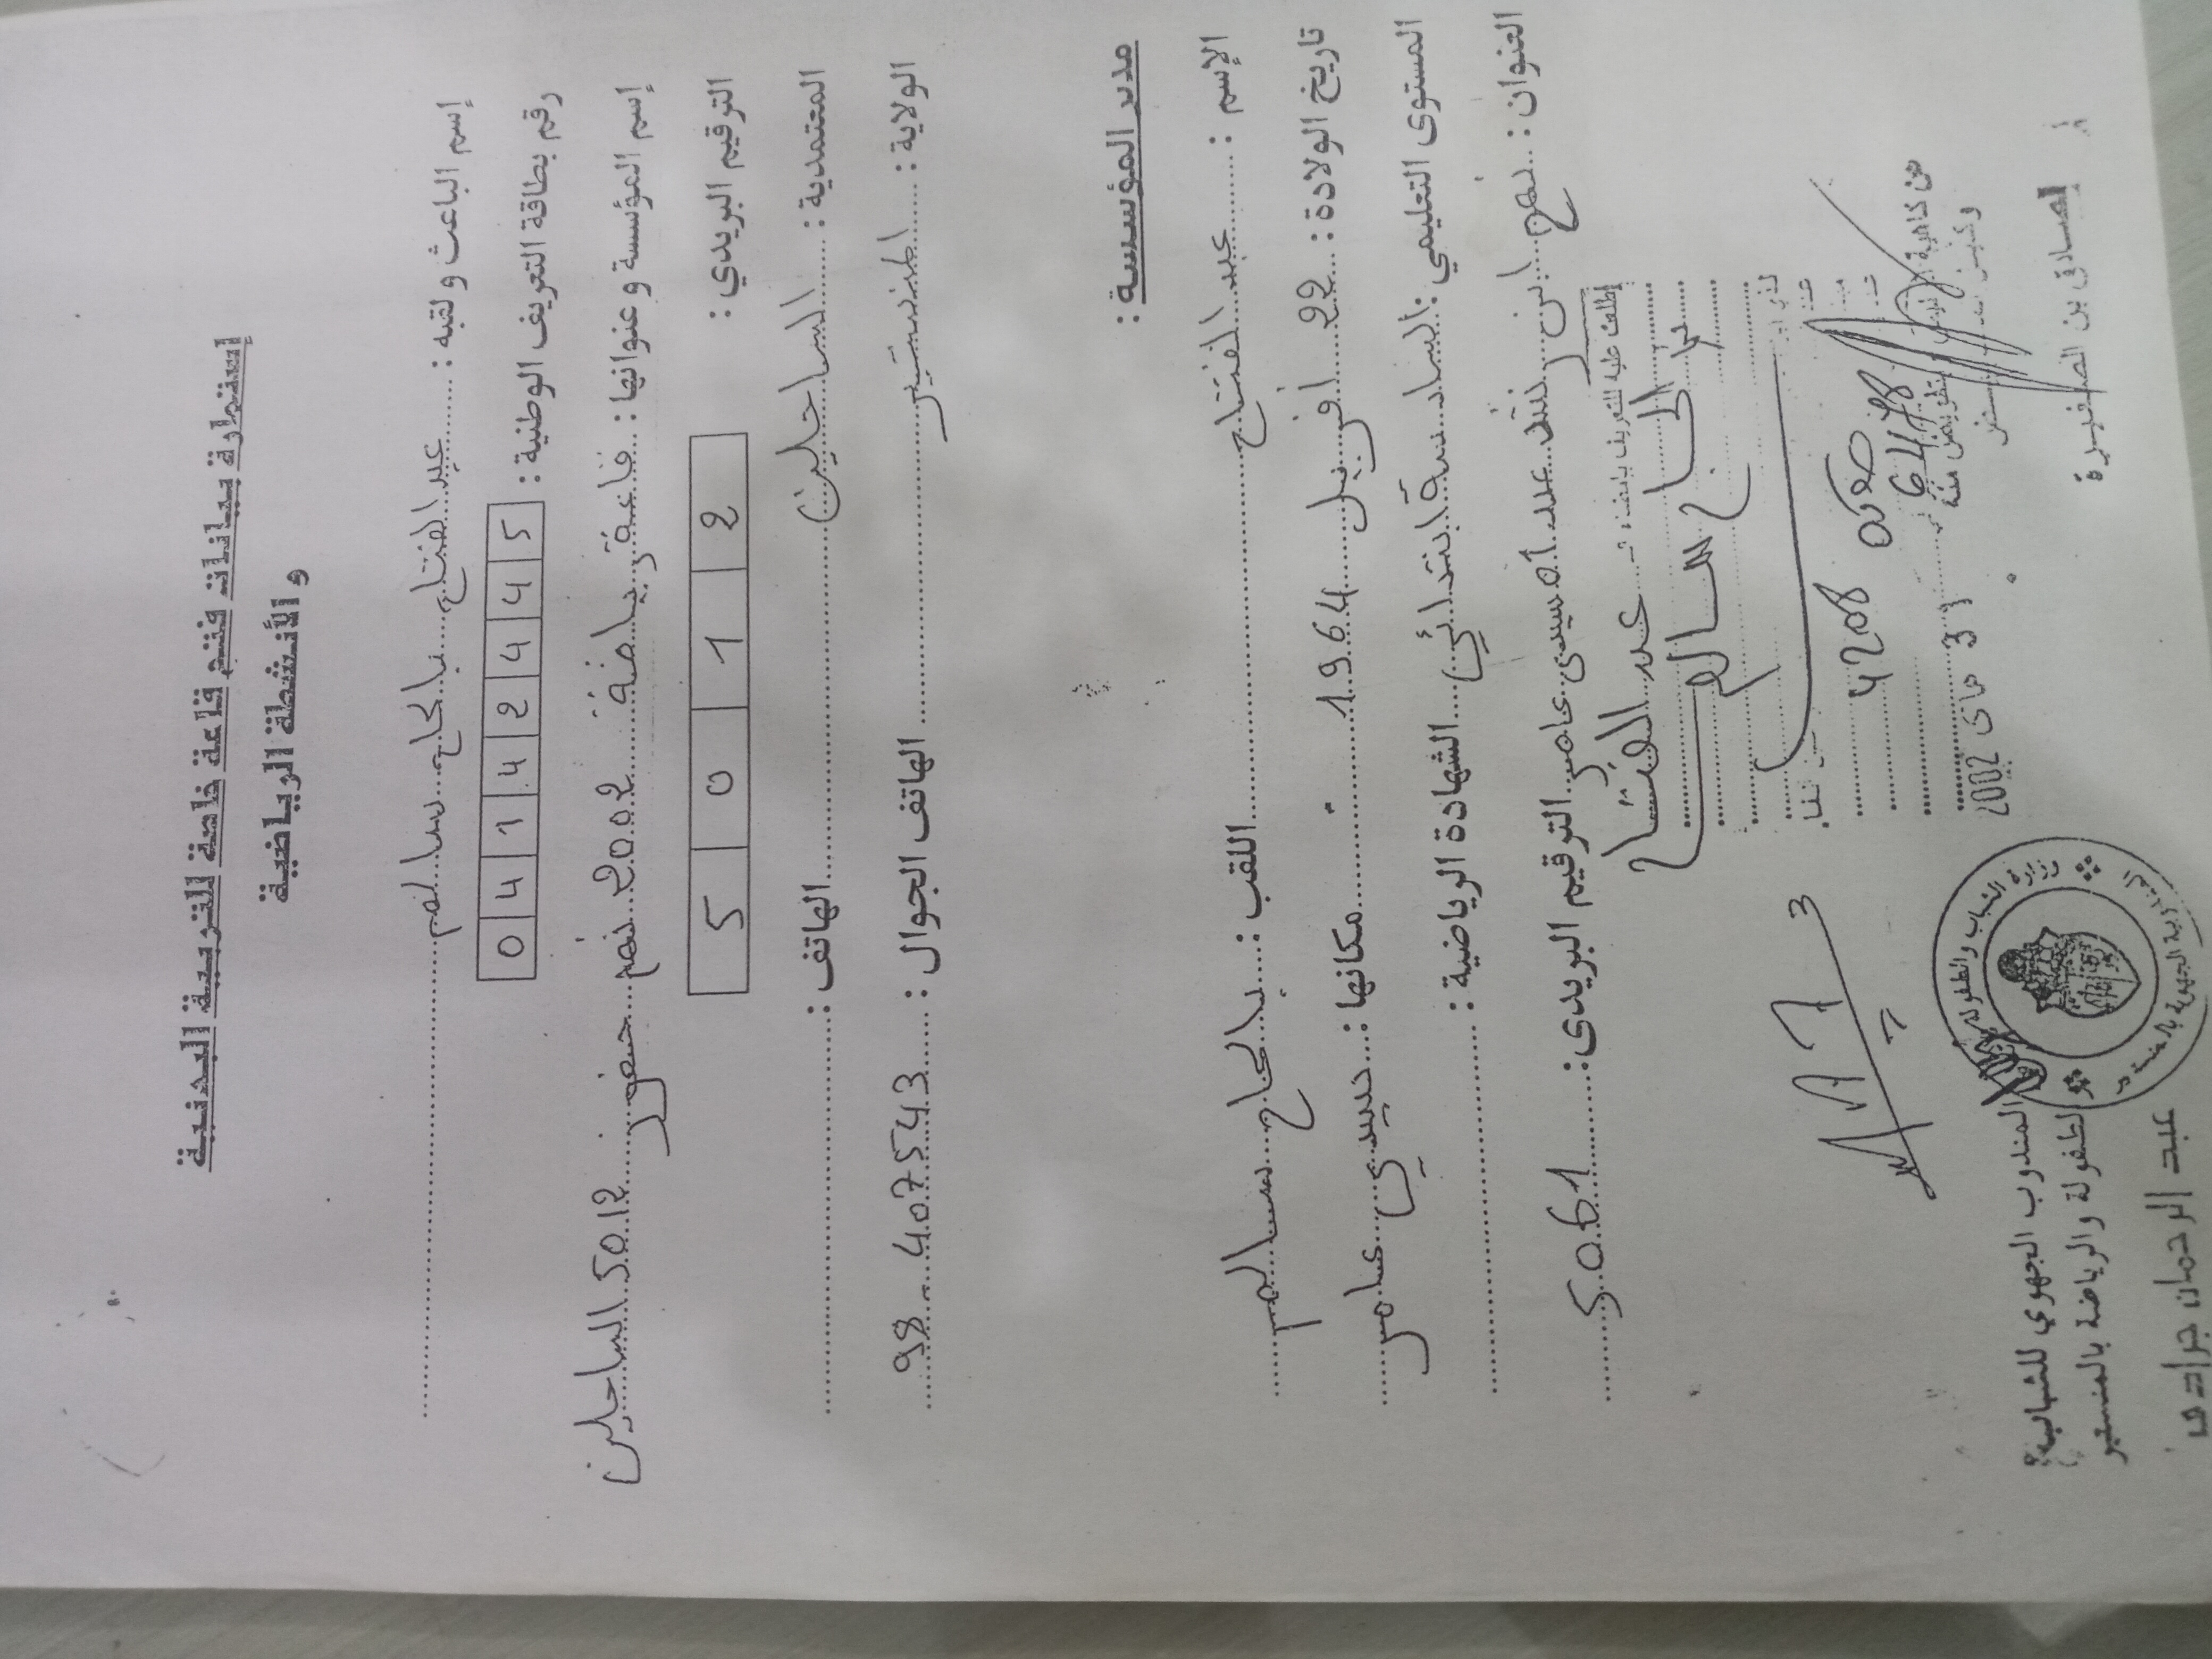 إستمارة بيانات فتح قاعة خاصة للتربية البدنية
و الأنشطة الرياضية
إسم الباعث و لقبه : عبد الفتاح بالحاج سالم
رقم بطاقة التعريف الوطنية : 0 4 1 4 2 4 4 5
إسم المؤسسة و عنوانها : قاعة رياضة 2002 نهج 5012 الساحلين
الترقيم البريدي : 5 0 1 2
المعتمدية : الساحلين الهاتف :
الولاية : المنستير الهاتف الجوال : 98 - 407543
مدير المؤسسة :
الإسم : عبد الفتاح اللقب : بالحاج سالم
تاريخ الولادة : 22 أفريل 1964 مكانها : سيدي عامر
المستوى التعليمي : السادسة ابتدائي الشهادة الرياضية :
العنوان : نهج ابن رشد عدد 1 سيدي عامر الترقيم البريدي : 5061
إطلع عليه للتعريف بإمضاء
عبد الفتاح
بالحاج سالم
4208
6478
31 ماي 2002
الصادق بن الصغيرة
وزارة الشباب والطفولة
المندوب الجهوي للشباب
و الطفولة والرياضة بالمنستير
عبد الرحمان جرادي